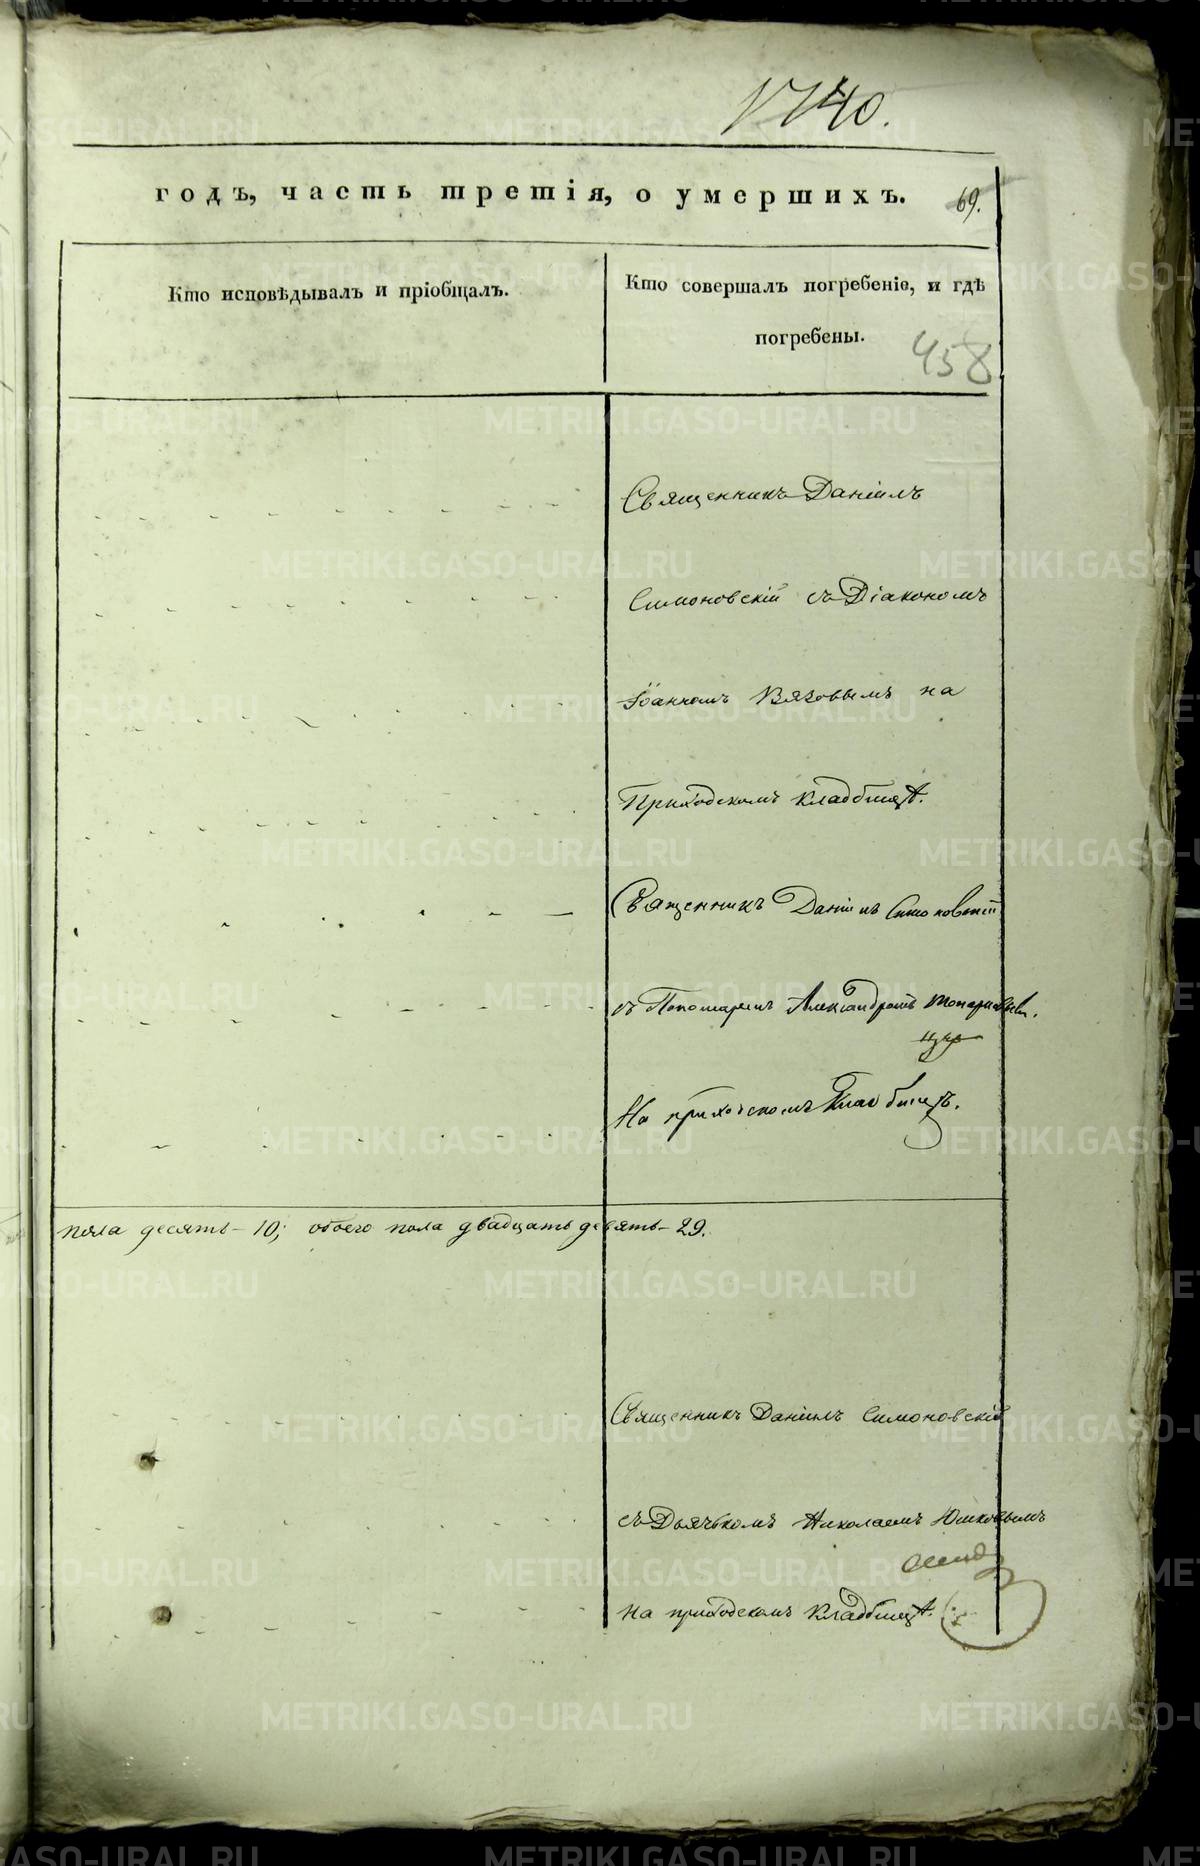 1740.
годъ, часть третія, о умершихъ. 69.
Кто исповѣдывалъ и пріобщалъ.
Кто совершалъ погребеніе, и гдѣ
погребены.
458
Священникъ Даніилъ
Симоновскій съ Діакономъ
Іоанномъ Вязовымъ на
Приходскомъ кладбищѣ.
Священникъ Даніилъ Симоновскій
съ Пономаремъ Александромъ
На приходскомъ кладбищѣ.
пола десять – 10; обоего пола двадцать девять – 29.
Священникъ Даніилъ Симоновскій
съ Дьячькомъ Николаемъ Юшковымъ
на приходскомъ кладбищѣ.
METRIKI.GASO-URAL.RU